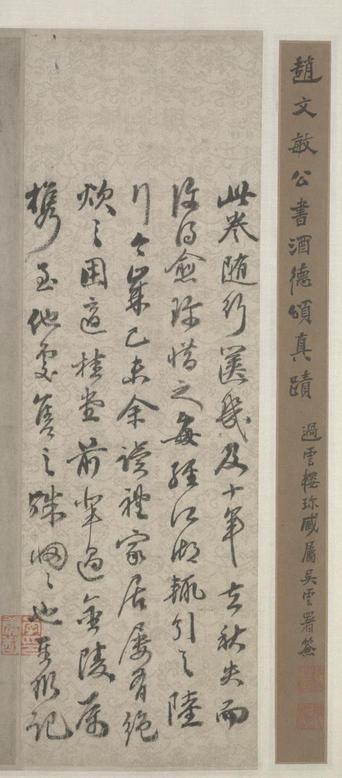 趙文敏公書酒德頌真蹟
過雲樓珍藏屬吳雲署簽
此卷随行篋幾及十年去秋失而
復得愈珍惜之每經江湖輒引之陸
行今歲己未余讀禮家居屢有絶
炊之困適桂堂前輩過金陵屬
攜至他處售之殊惘惘也記